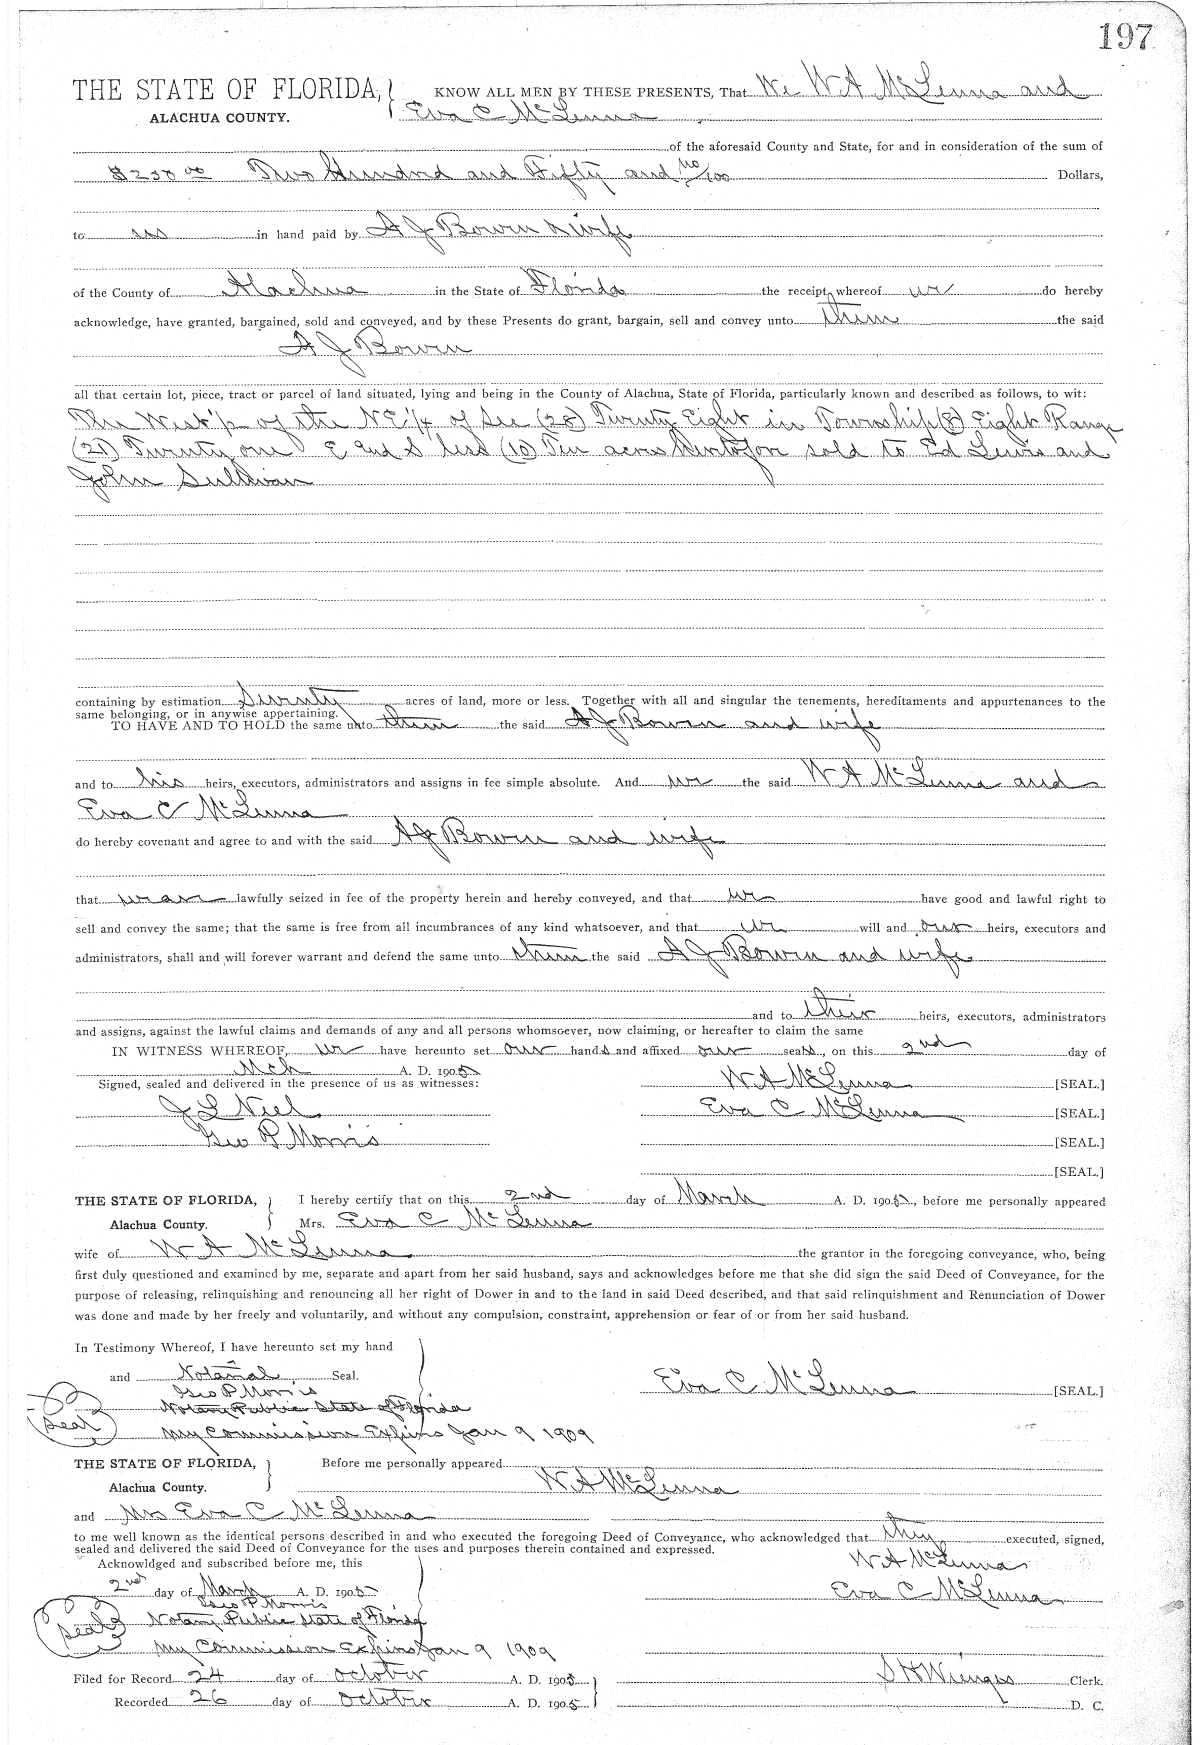 197
THE STATE OF FLORIDA, KNOW ALL MEN BY THESE PRESENTS, That We W A McLenna and
ALACHUA COUNTY. Eva C McLenna
of the aforesaid County and State, for and in consideration of the sum of
$250 00 Two Hundred and Fifty and no/100 Dollars,
to us in hand paid by A J Bowen & wife
of the County of Alachua in the State of Florida the receipt whereof we do hereby
acknowledge, have granted, bargained, sold and conveyed, and by these Presents do grant, bargain, sell and convey unto them the said
A J Bowen
all that certain lot, piece, tract or parcel of land situated, lying and being in the County of Alachua, State of Florida, particularly known and described as follows, to wit:
The West 1/2 of the NE 1/4 of Sec (28) Twenty Eight in Township (8) Eight Range
(21) Twenty one E and S less (10) Ten acres heretofore sold to Ed Lewis and
John Sullivan
containing by estimation Seventy acres of land, more or less. Together with all and singular the tenements, hereditaments and appurtenances to the
same belonging, or in anywise appertaining.
TO HAVE AND TO HOLD the same unto them the said A J Bowen and wife
and to his heirs, executors, administrators and assigns in fee simple absolute. And we the said W A McLenna and
Eva C McLenna
do hereby covenant and agree to and with the said A J Bowen and wife
that we are lawfully seized in fee of the property herein and hereby conveyed, and that we have good and lawful right to
sell and convey the same; that the same is free from all incumbrances of any kind whatsoever, and that we will and our heirs, executors and
administrators, shall and will forever warrant and defend the same unto them the said A J Bowen and wife
and to their heirs, executors, administrators
and assigns, against the lawful claims and demands of any and all persons whomsoever, now claiming, or hereafter to claim the same
IN WITNESS WHEREOF, we have hereunto set our hands and affixed our seals, on this 2nd day of
Mch A. D. 1905
Signed, sealed and delivered in the presence of us as witnesses: W A McLenna [SEAL.]
J L Niel Eva C McLenna [SEAL.]
Geo P Morris [SEAL.]
[SEAL.]
THE STATE OF FLORIDA, I hereby certify that on this 2nd day of March A. D. 1905, before me personally appeared
Alachua County. Mrs. Eva C McLenna
wife of W A McLenna the grantor in the foregoing conveyance, who, being
first duly questioned and examined by me, separate and apart from her said husband, says and acknowledges before me that she did sign the said Deed of Conveyance, for the
purpose of releasing, relinquishing and renouncing all her right of Dower in and to the land in said Deed described, and that said relinquishment and Renunciation of Dower
was done and made by her freely and voluntarily, and without any compulsion, constraint, apprehension or fear of or from her said husband.
In Testimony Whereof, I have hereunto set my hand
and Notarial Seal. Eva C McLenna [SEAL.]
Geo P Morris
Seal Notary Public State of Florida
My Commission Expires Jan 9 1909
THE STATE OF FLORIDA, Before me personally appeared
Alachua County. W A McLenna
and Mrs Eva C McLenna
to me well known as the identical persons described in and who executed the foregoing Deed of Conveyance, who acknowledged that they executed, signed,
sealed and delivered the said Deed of Conveyance for the uses and purposes therein contained and expressed.
Acknowldged and subscribed before me, this W A McLenna
2nd day of March A. D. 1905 Eva C McLenna
Geo P Morris
Seal Notary Public State of Florida
My Commission Expires Jan 9 1909
Filed for Record 24 day of October A. D. 1905 S H Wienges Clerk.
Recorded 26 day of October A. D. 1905 D. C.